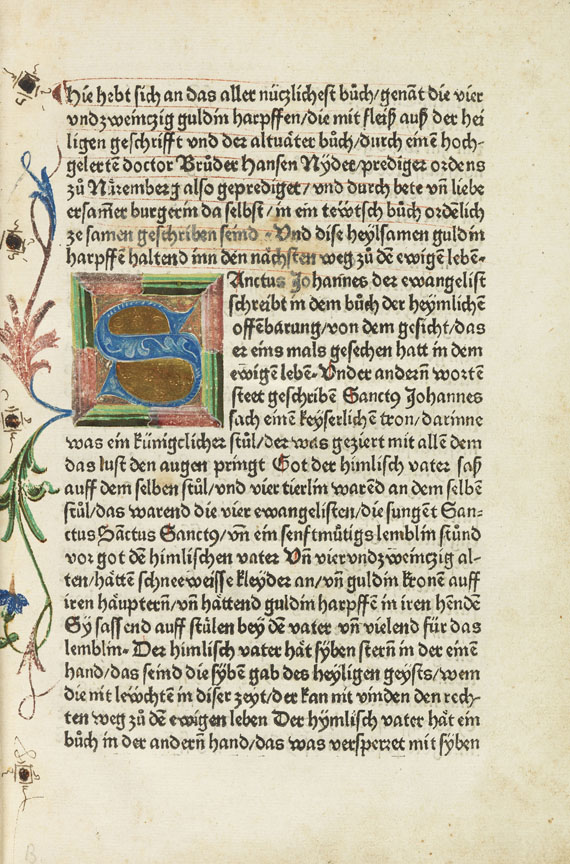 Hie hebt sich an das aller nüczlichest bůch/genãt die vier
vnd zweinczig guldin harpffen/die mit fleiß auß der hei
ligen geschrifft vnd der altuäter bůch/durch einẽ hoch-
gelertẽ doctor Brůder Hansen Nyder/prediger ordens
zů Nüremberg also geprediget/vnd durch bete vñ liebe
ersam̃er burgerin da selbst/in ein tewtsch bůch ordẽlich
ze samen geschriben seind. Vnd dise heylsamen guldin
harpffẽ haltend inn den nächsten weg zů dẽ ewigẽ lebẽ.
SAnctus Johannes der ewangelist
schreibt in dem bůch der heymlichẽ
offẽbarung/von dem gesicht/das
er eins mals gesechen hatt in dem
ewigẽ lebẽ. Vnder andern̄ wortẽ
steet geschribẽ Sanctꝰ Johannes
sach einẽ keyserlichẽ tron/darinne
was ein künigclicher stůl/der was geziert mit allẽ dem
das lust den augen pringt Got der himlisch vater saß
auff dem selben stůl/vnd vier tierlin warẽd an dem selbẽ
stůl/das warend die vier ewangelistẽ/die sungẽt San-
ctus Sãctus Sanctꝰ/vñ ein senftmůtigs lemblin stůnd
vor got dẽ himlischen vater Vñ vier vnd zweinczig al-
ten/hättẽ schneeweisse kleyder an/vñ guldin kronẽ auff
iren häuptern̄/vñ hättend guldin harpffẽ in iren hẽndẽ
Sy sassend auff stůlen bey dẽ vater vñ vielend für das
lemblin. Der himlisch vater hät syben stern̄ in der einẽ
hand/das seind die sybẽ gab des heyligen geysts/wem
die nit lewchtẽ in diser zeyt/der kan nit vinden den rech-
ten weg zů dẽ ewigen leben Der hymlisch vater hät ein
bůch in der andern̄ hand/das was versperret mit syben